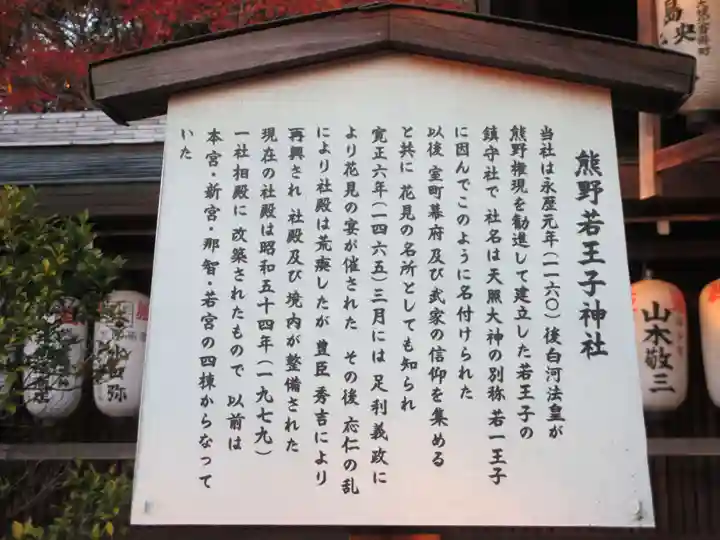 熊野若王子神社
当社は永歴元年(一一六〇)後白河法皇が
熊野権現を勧進して建立した若王子の
鎮守社で 社名は天照大神の別称 若一王子
に因んでこのように名付けられた
以後 室町幕府及び武家の信仰を集める
と共に 花見の名所としても知られ
寛正六年(一四六五)三月には 足利義政に
より花見の宴が催された その後 応仁の乱
により社殿は荒廃したが 豊臣秀吉により
再興され 社殿及び境内が整備された
現在の社殿は昭和五十四年(一九七九)
一社相殿に 改築されたもので 以前は
本宮・新宮・那智・若宮の四棟からなって
いた
島央
山本敬三
弥